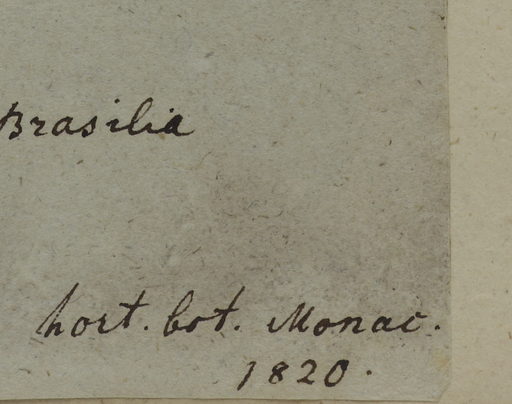 Brasilia
hort. bot. Monac.
1820.